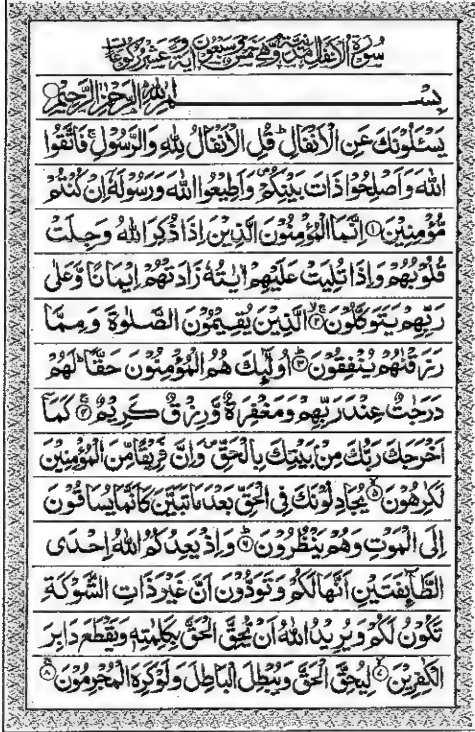 سُوْرَةُ الْاَنْفَالِ مَدَنِيَّةٌ وَّهِىَ خَمْسٌ وَّسَبْعُوْنَ اٰيَةً وَّعَشْرُ رُكُوْعَاتٍ
بِسْمِ اللهِ الرَّحْمٰنِ الرَّحِيْمِ
يَسْـَٔلُوْنَكَ عَنِ الْاَنْفَالِ ؕ قُلِ الْاَنْفَالُ لِلّٰهِ وَالرَّسُوْلِ ۚ فَاتَّقُوا
اللهَ وَاَصْلِحُوْا ذَاتَ بَيْنِكُمْ ۪ وَاَطِيْعُوا اللهَ وَرَسُوْلَهٗۤ اِنْ كُنْتُمْ
مُّؤْمِنِيْنَ ۝۱ اِنَّمَا الْمُؤْمِنُوْنَ الَّذِيْنَ اِذَا ذُكِرَ اللهُ وَجِلَتْ
قُلُوْبُهُمْ وَاِذَا تُلِيَتْ عَلَيْهِمْ اٰيٰتُهٗ زَادَتْهُمْ اِيْمَانًا وَّعَلٰى
رَبِّهِمْ يَتَوَكَّلُوْنَ ۝۲ الَّذِيْنَ يُقِيْمُوْنَ الصَّلٰوةَ وَمِمَّا
رَزَقْنٰهُمْ يُنْفِقُوْنَ ۝۳ اُولٰٓئِكَ هُمُ الْمُؤْمِنُوْنَ حَقًّا ؕ لَهُمْ
دَرَجٰتٌ عِنْدَ رَبِّهِمْ وَمَغْفِرَةٌ وَّرِزْقٌ كَرِيْمٌ ۝۴ كَمَاۤ
اَخْرَجَكَ رَبُّكَ مِنْۢ بَيْتِكَ بِالْحَقِّ ۪ وَاِنَّ فَرِيْقًا مِّنَ الْمُؤْمِنِيْنَ
لَكٰرِهُوْنَ ۝۵ يُجَادِلُوْنَكَ فِى الْحَقِّ بَعْدَ مَا تَبَيَّنَ كَاَنَّمَا يُسَاقُوْنَ
اِلَى الْمَوْتِ وَهُمْ يَنْظُرُوْنَ ۝۶ وَاِذْ يَعِدُكُمُ اللهُ اِحْدَى
الطَّآئِفَتَيْنِ اَنَّهَا لَكُمْ وَتَوَدُّوْنَ اَنَّ غَيْرَ ذَاتِ الشَّوْكَةِ
تَكُوْنُ لَكُمْ وَيُرِيْدُ اللهُ اَنْ يُّحِقَّ الْحَقَّ بِكَلِمٰتِهٖ وَيَقْطَعَ دَابِرَ
الْكٰفِرِيْنَ ۝۷ لِيُحِقَّ الْحَقَّ وَيُبْطِلَ الْبَاطِلَ وَلَوْ كَرِهَ الْمُجْرِمُوْنَ ۝۸